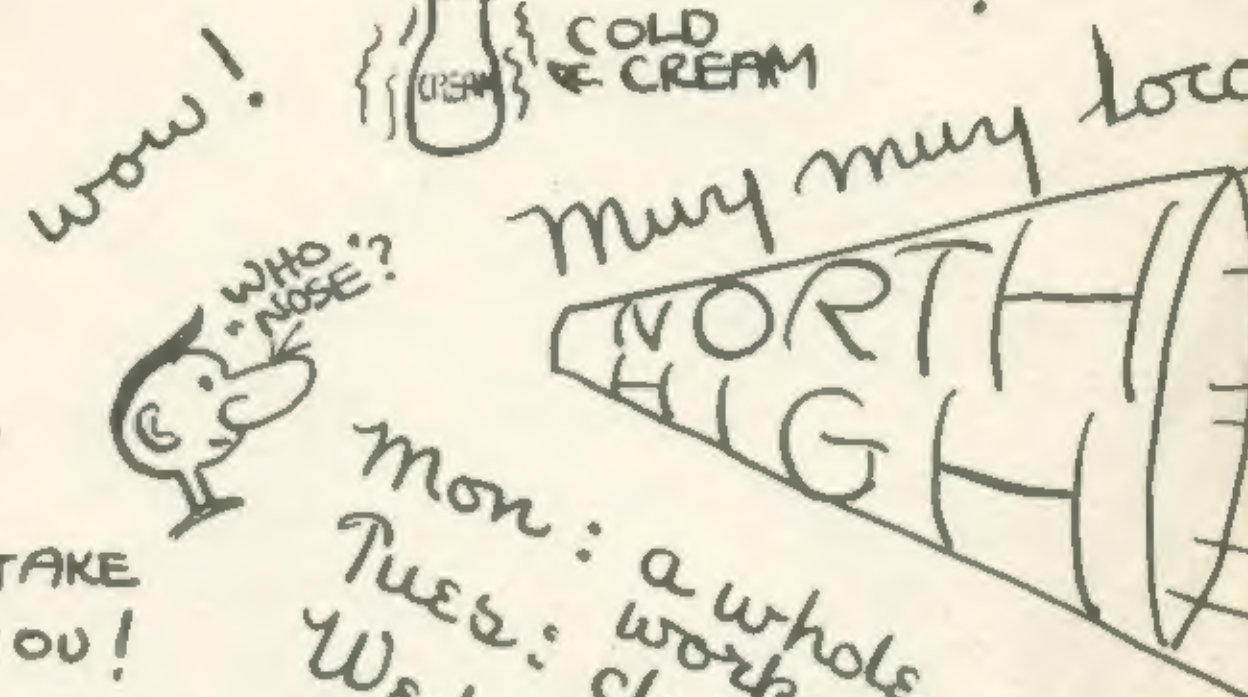 wow!
CREAM
COLD
CREAM
Muy muy
"WHO"?
"NOSE"
NORTH
HIGH
Mon: a whole
Tues: work
TAKE